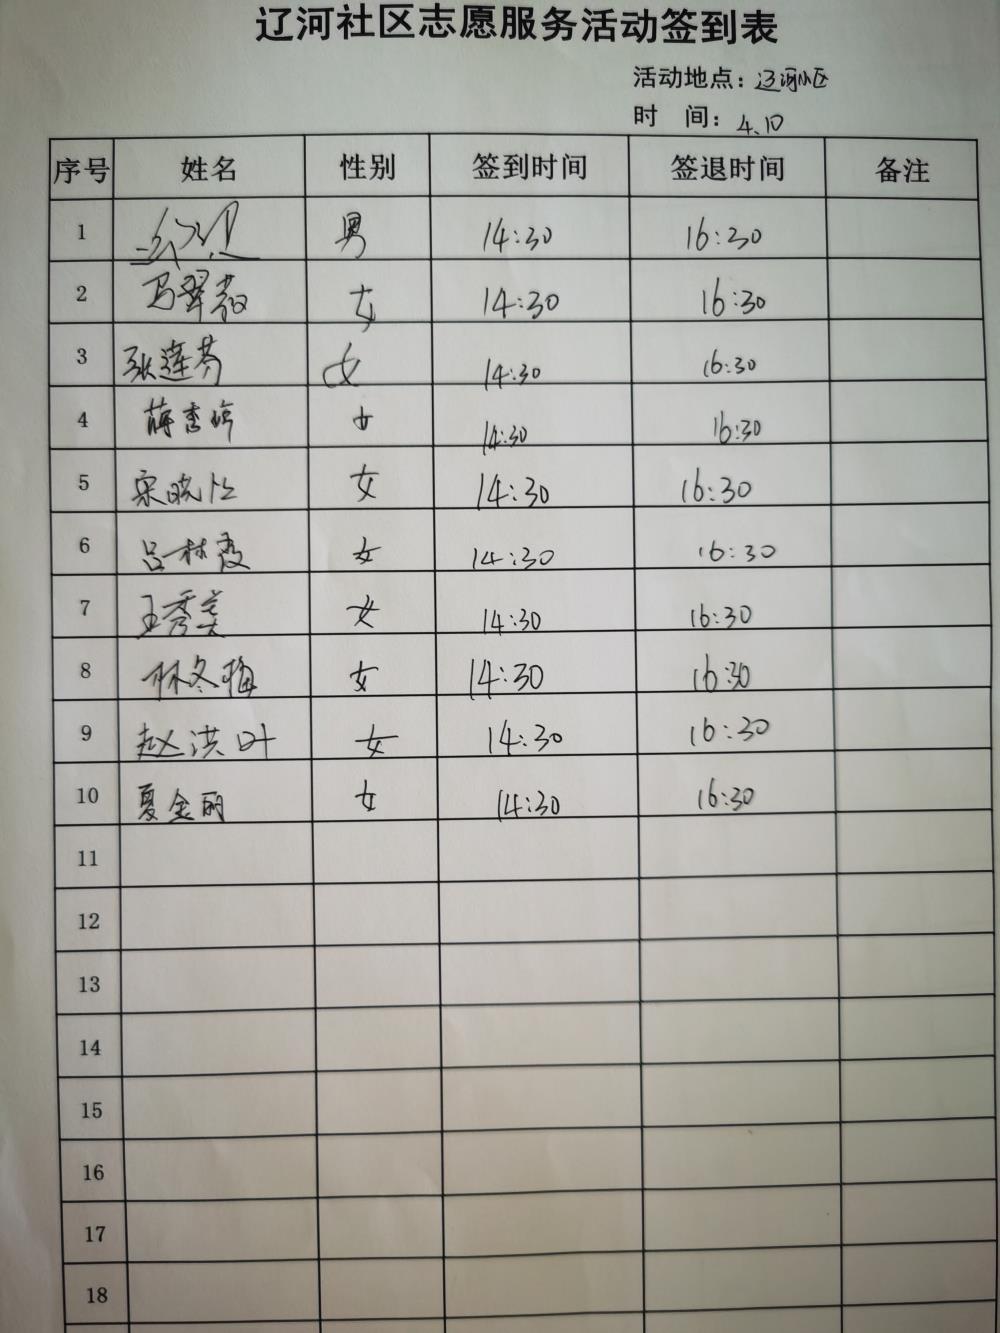 辽河社区志愿服务活动签到表
活动地点：辽河小区
时 间：4.10
序号 姓名 性别 签到时间 签退时间 备注
1 男 14:30 16:30
2 冯翠 女 14:30 16:30
3 张莲芬 女 14:30 16:30
4 蒋秀婷 女 14:30 16:30
5 宋晓 女 14:30 16:30
6 吕林霞 女 14:30 16:30
7 王秀美 女 14:30 16:30
8 林冬梅 女 14:30 16:30
9 赵洪叶 女 14:30 16:30
10 夏金丽 女 14:30 16:30
11
12
13
14
15
16
17
18